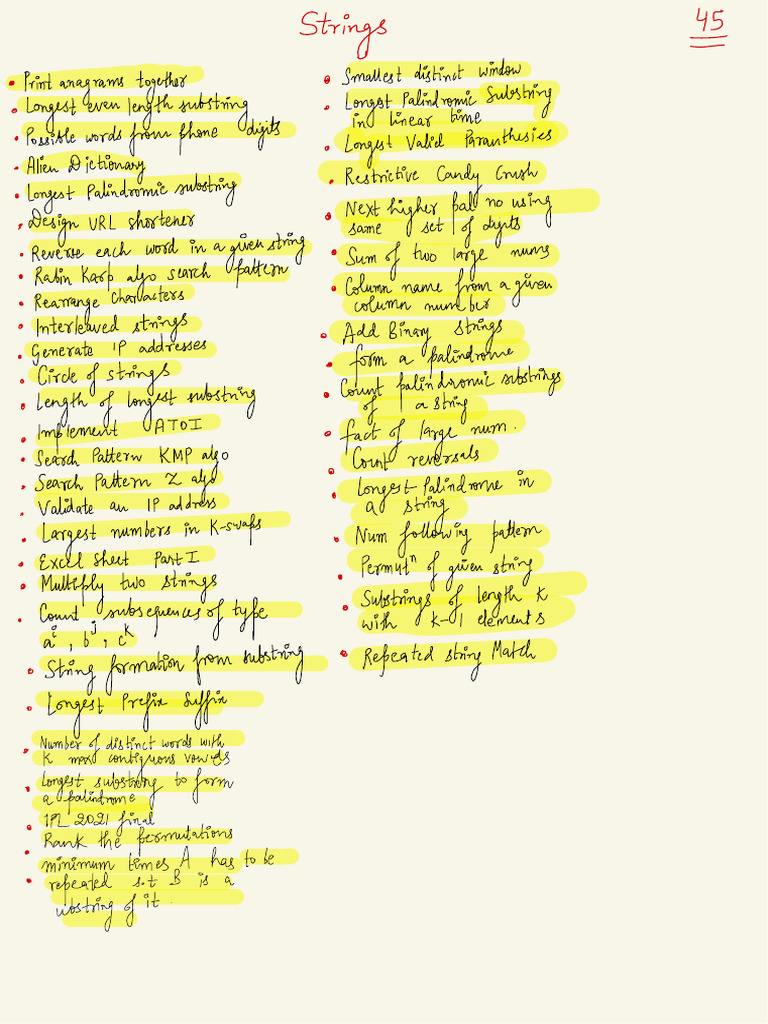 Strings
45
Print anagrams together
Longest even length substring
Possible words from phone digits
Alien Dictionary
Longest Palindromic substring
Design URL shortener
Reverse each word in a given string
Rabin Karp algo search pattern
Rearrange characters
Interleaved strings
Generate IP addresses
Circle of strings
Length of longest substring
Implement ATOI
Search Pattern KMP algo
Search Pattern Z algo
Validate an IP address
Largest numbers in K-swaps
Excel Sheet Part I
Multiply two strings
Count subsequences of type
a^i, b^j, c^k
String formation from substring
Longest Prefix Suffix
Number of distinct words with
K max contiguous vowels
Longest substring to form
a palindrome
IPL 2021 final
Rank the permutations
minimum times A has to be
repeated s.t B is a
ubstring of it.
Smallest distinct window
Longest Palindromic Substring
in linear time
Longest Valid Paranthesies
Restrictive Candy Crush
Next higher pal no using
same set of digits
Sum of two large nums
Column name from a given
column number
Add Binary strings
form a palindrome
Count palindromic substrings
of a string
fact of large num.
Count reversals
Longest Palindrome in
a string
Num following pattern
Permutⁿ of given string
Substrings of length K
with K-1 elements
Repeated string Match